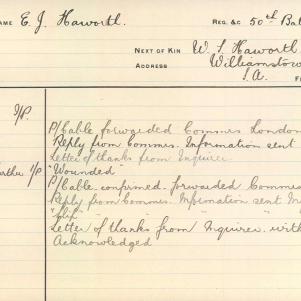 NAME E. J. Haworth. REG. &C 50th Bat
NEXT OF KIN W. S. Haworth
ADDRESS Williamstow
S.A.
I/P. P/Cable forwarded Commrs London
Reply from Commrs. Information sent
Letter of thanks from Inquirer
I/P "Wounded"
P/Cable confirmed. forwarded Commrs
Reply from Commrs. Information sent In
Letter of thanks from Inquirer with
Acknowledged